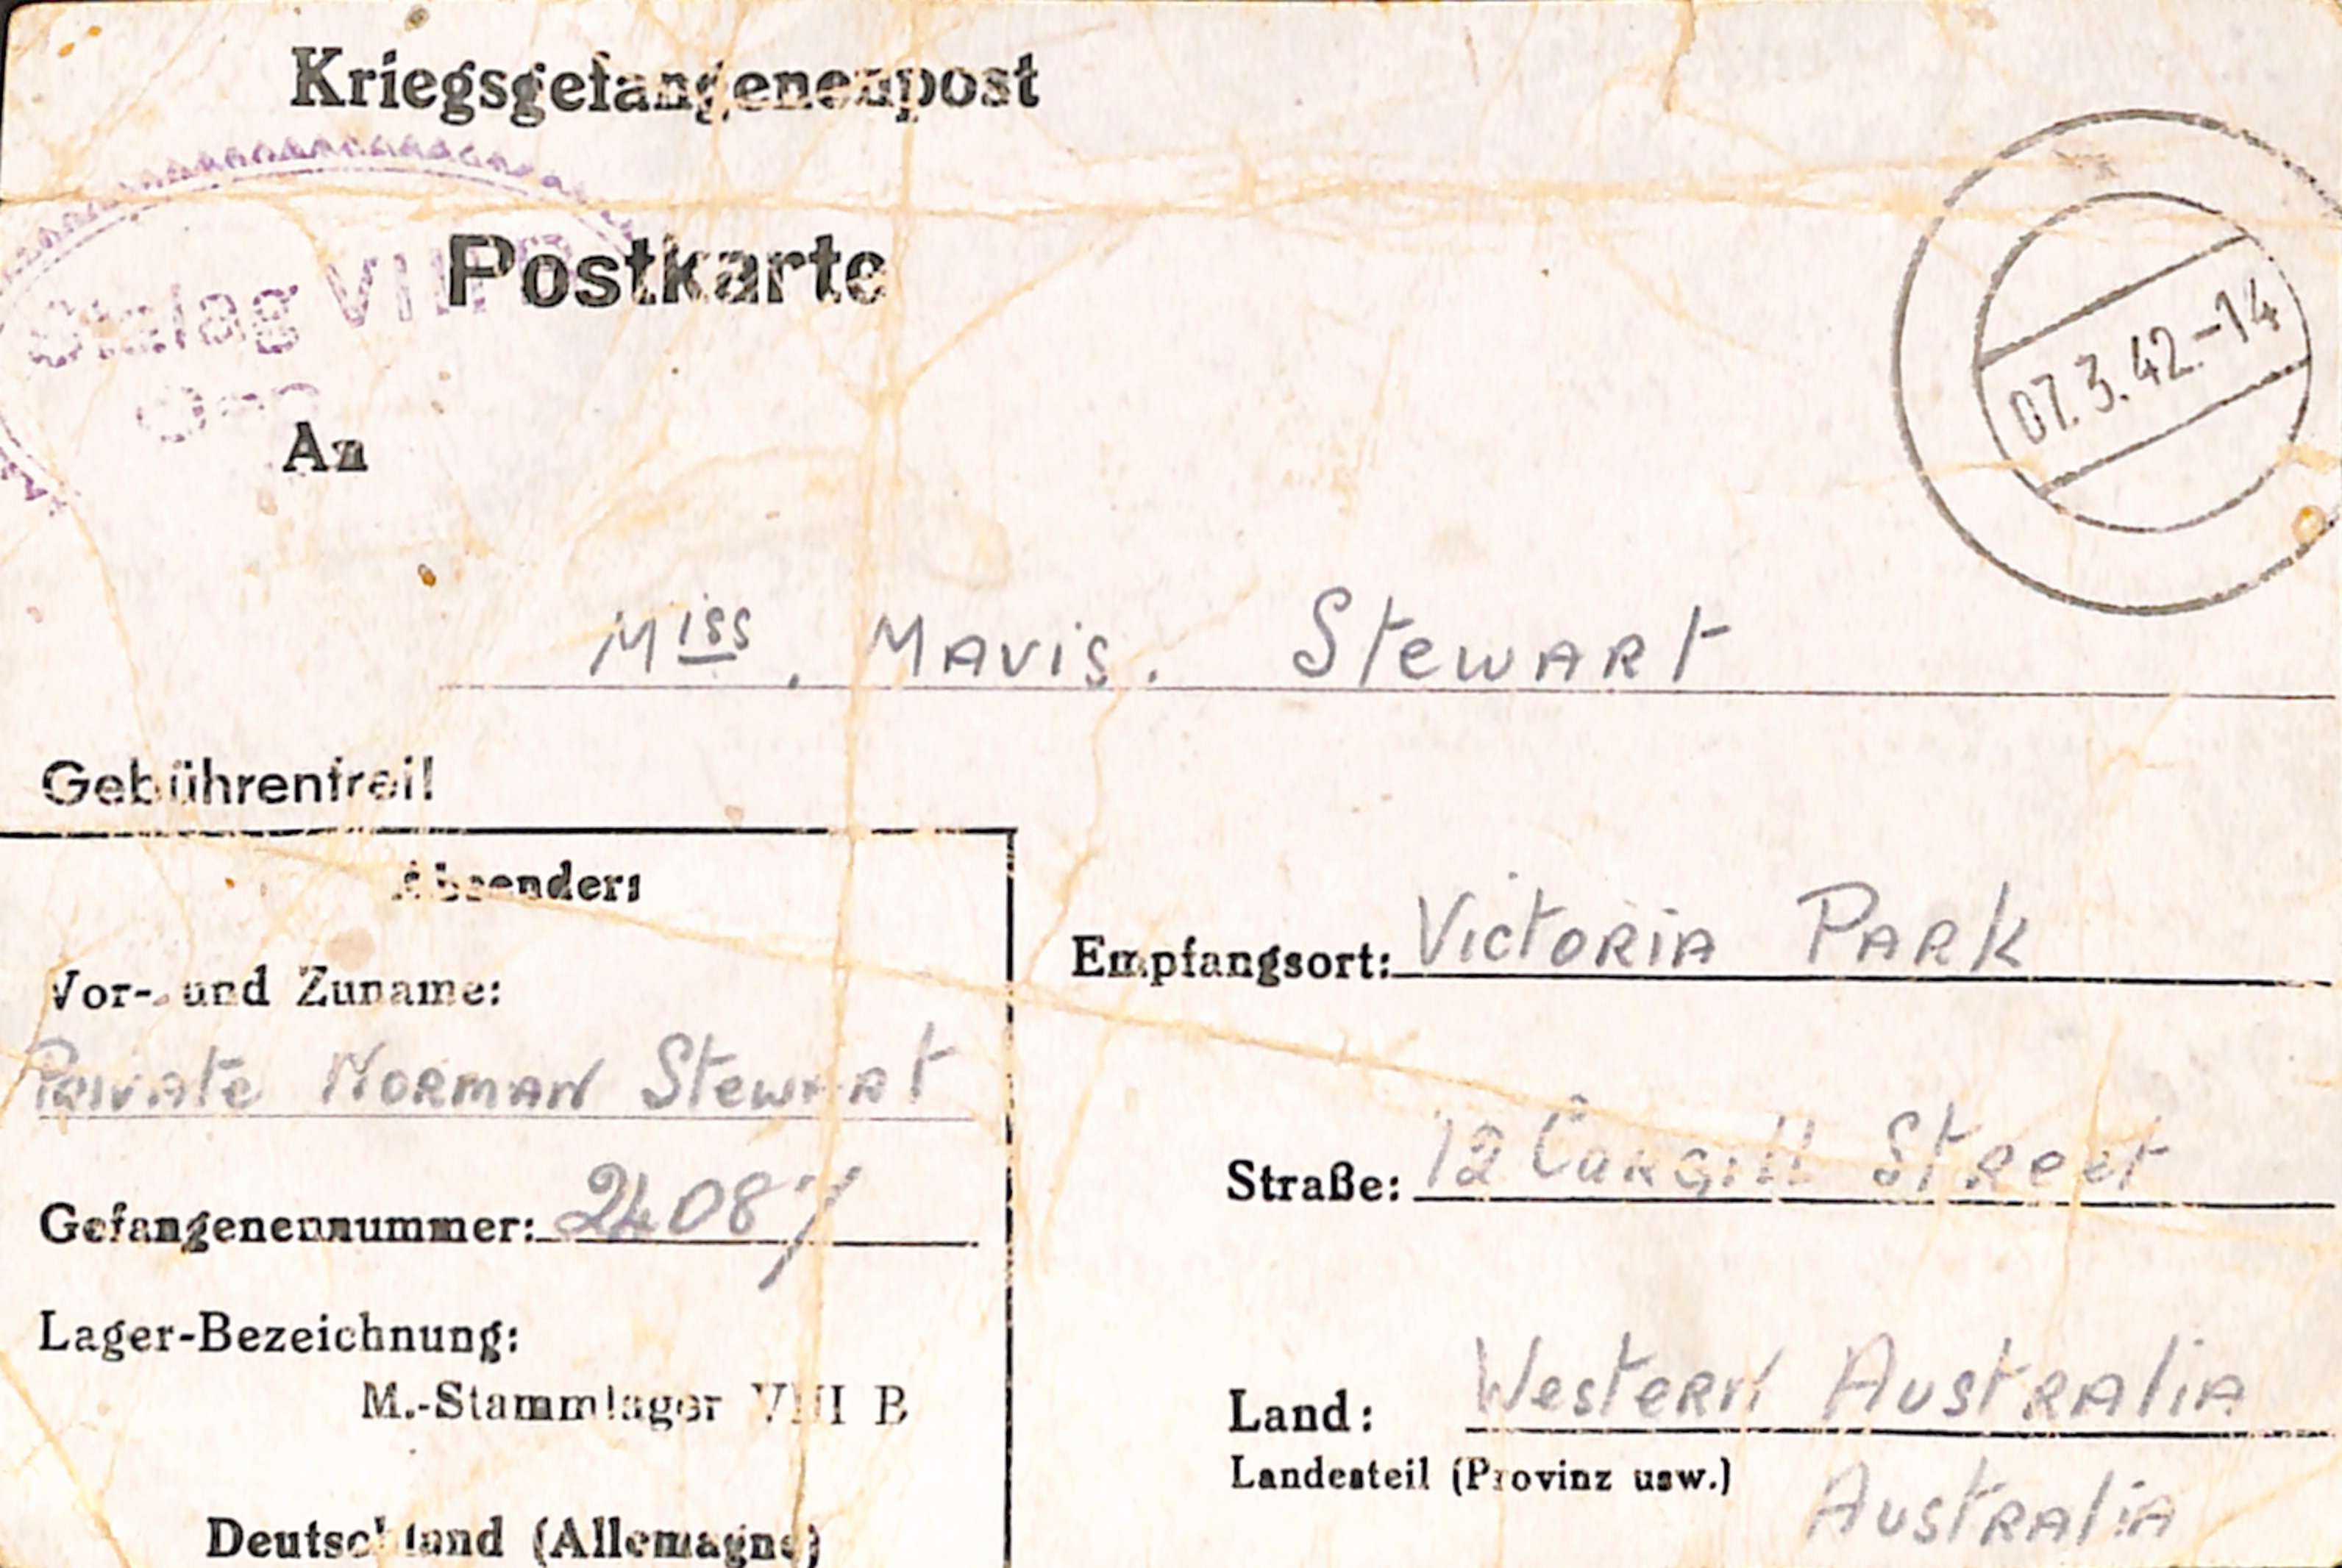 Kriegsgefangenenpost
Postkarte
Stalag VIII B
An
07.3.42.-14
Miss. Mavis. Stewart
Gebührenfrei!
Absender:
Vor- und Zuname:
Private Norman Stewart
Gefangenennummer: 24087
Lager-Bezeichnung:
M.-Stammlager VIII B
Deutschland (Allemagne)
Empfangsort: Victoria Park
Straße: 12 Cargill Street
Land: Western Australia
Landesteil (Provinz usw.)
Australia